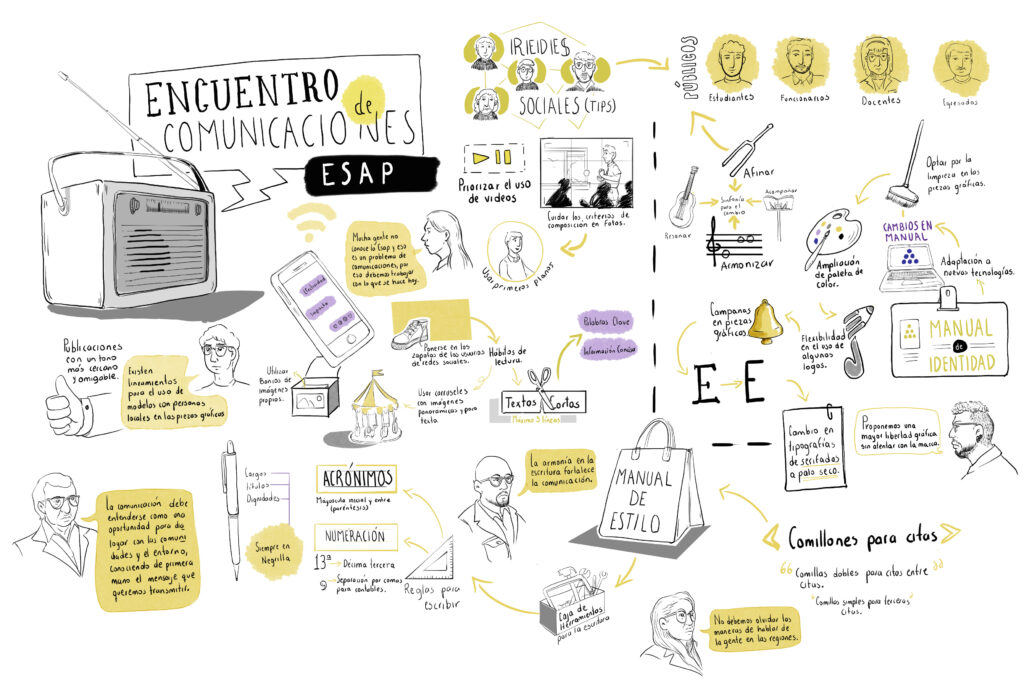 ENCUENTRO
de
COMUNICACIONES
ESAP
REDES
SOCIALES (TIPS)
Priorizar el uso
de videos
Cuidar los criterios de
composición en fotos.
Usar primeros planos
PÚBLICOS
Estudiantes
Funcionarios
Docentes
Egresados
Afinar
Sinfonía
para el
cambio
Acompañar
Resonar
Armonizar
Optar por la
limpieza en las
piezas gráficas.
CAMBIOS EN
MANUAL
Ampliación
de paleta de
color.
Adaptación a
nuevas tecnologías.
MANUAL
de
IDENTIDAD
Campanas
en piezas
gráficas
Flexibilidad
en el uso de
algunos
logos.
E E
Cambio en
tipografías
de serifadas
a palo seco.
Proponemos una
mayor libertad gráfica
sin alentar con la marca.
Mucha gente no
conoce la Esap y eso
es un problema de
comunicaciones, por
eso debemos trabajar
con lo que se hace hoy.
Publicaciones
con un tono
más cercano
y amigable.
Existen
lineamientos
para el uso de
modelos con personas
locales en las piezas gráficas
Utilizar
Bancos de
imágenes
propios.
Ponerse en los
zapatos de los usuarios
de redes sociales.
Usar carruseles
con imágenes
panorámicas y poro
texto
Hábitos de
lectura.
Palabras Clave
Información Concisa
Textos Cortos
Máximo 5 líneas
La comunicación debe
entenderse como una
oportunidad para dia
logar con las comuni
dades y el entorno,
conociendo de primera
mano el mensaje que
queremos transmitir.
Cargos
títulos
Dignidades
Siempre en
Negrilla
ACRÓNIMOS
Mayúscula inicial y entre
(paréntesis)
NUMERACIÓN
13ª Décima tercera
9 Separación por comas
para contables.
Reglas para
escribir
La armonía en la
escritura fortalece
la comunicación.
MANUAL
DE
ESTILO
Caja de
Herramientas
para la escritura
Comillones para citas
Comillas dobles para citas entre
citas.
"Comillas simples para terceras"
citas.
No debemos olvidar las
maneras de hablar de
la gente en las regiones.